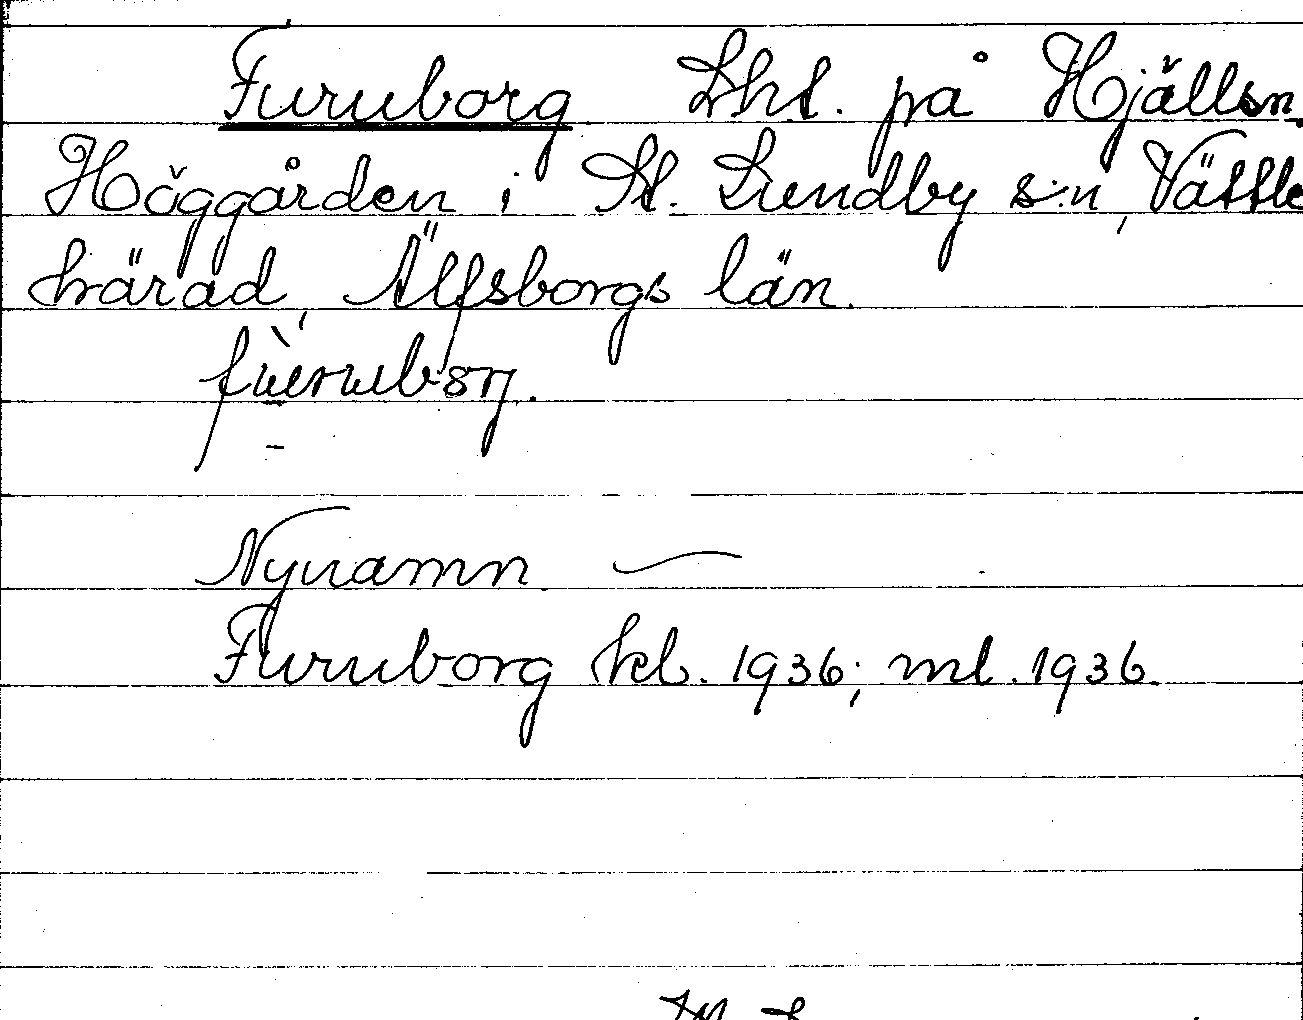 Furuborg Lht. på Hjällsn.
Höggården i St. Lundby s:n, Vättle
härad, Älfsborgs län.
Nynamn —
Furuborg kb. 1936; ml. 1936.